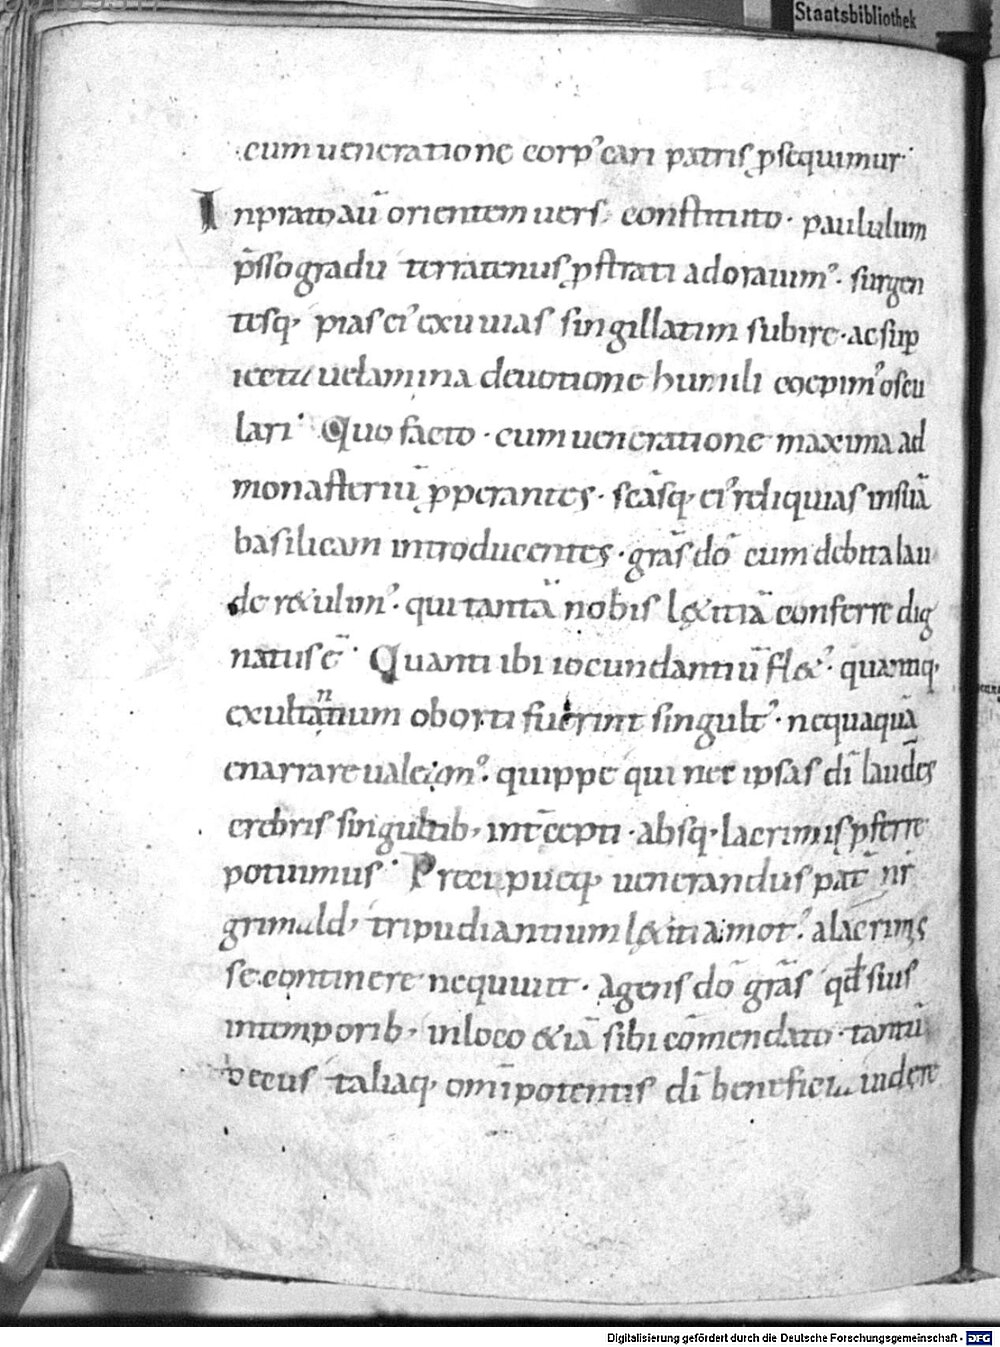 Staatsbibliothek
cum ueneratione corp᾽ cari patris ꝓsequimur·
In prato aū orientem uers᾽ constituto· paululum
p̄sso gradu terratenus ꝓstrati adorauim᾽· surgen
tesq· pias ei᾽ exuuias singillatim subire· ac sup
iectu uelamina deuotione humili coepim᾽ oscu
lari· Quo facto· cum ueneratione maxima ad
monasteriū ꝓperantes· sc̄asq· ei᾽ reliquias in suā
basilicam introducentes· grās dō cum debita lau
de retulim᾽· qui tantā nobis l&itiā conferre dig
natus ē· Quanti ibi iocundantiū fl&᾽· quantiq·
exultantium oborti fuerint singult᾽· nequaquā
enarrare ualeam᾽· quippe qui nec ipsas dī laudes
crebris singultib· int̄cepti· absq· lacrimis ꝓferre
potuimus· Precipueq· uenerandus pat̄ nr̄
grimald᾽ tripudiantium l&itia mot᾽· alacrimis
se continere nequiuit· Agens dō grās qđ suis
in temporib· in loco &iā sibi cōmendato· tantū
decus taliaq· om̄ipotentis dī beneficia uidere
Digitalisierung gefördert durch die Deutsche Forschungsgemeinschaft - DFG